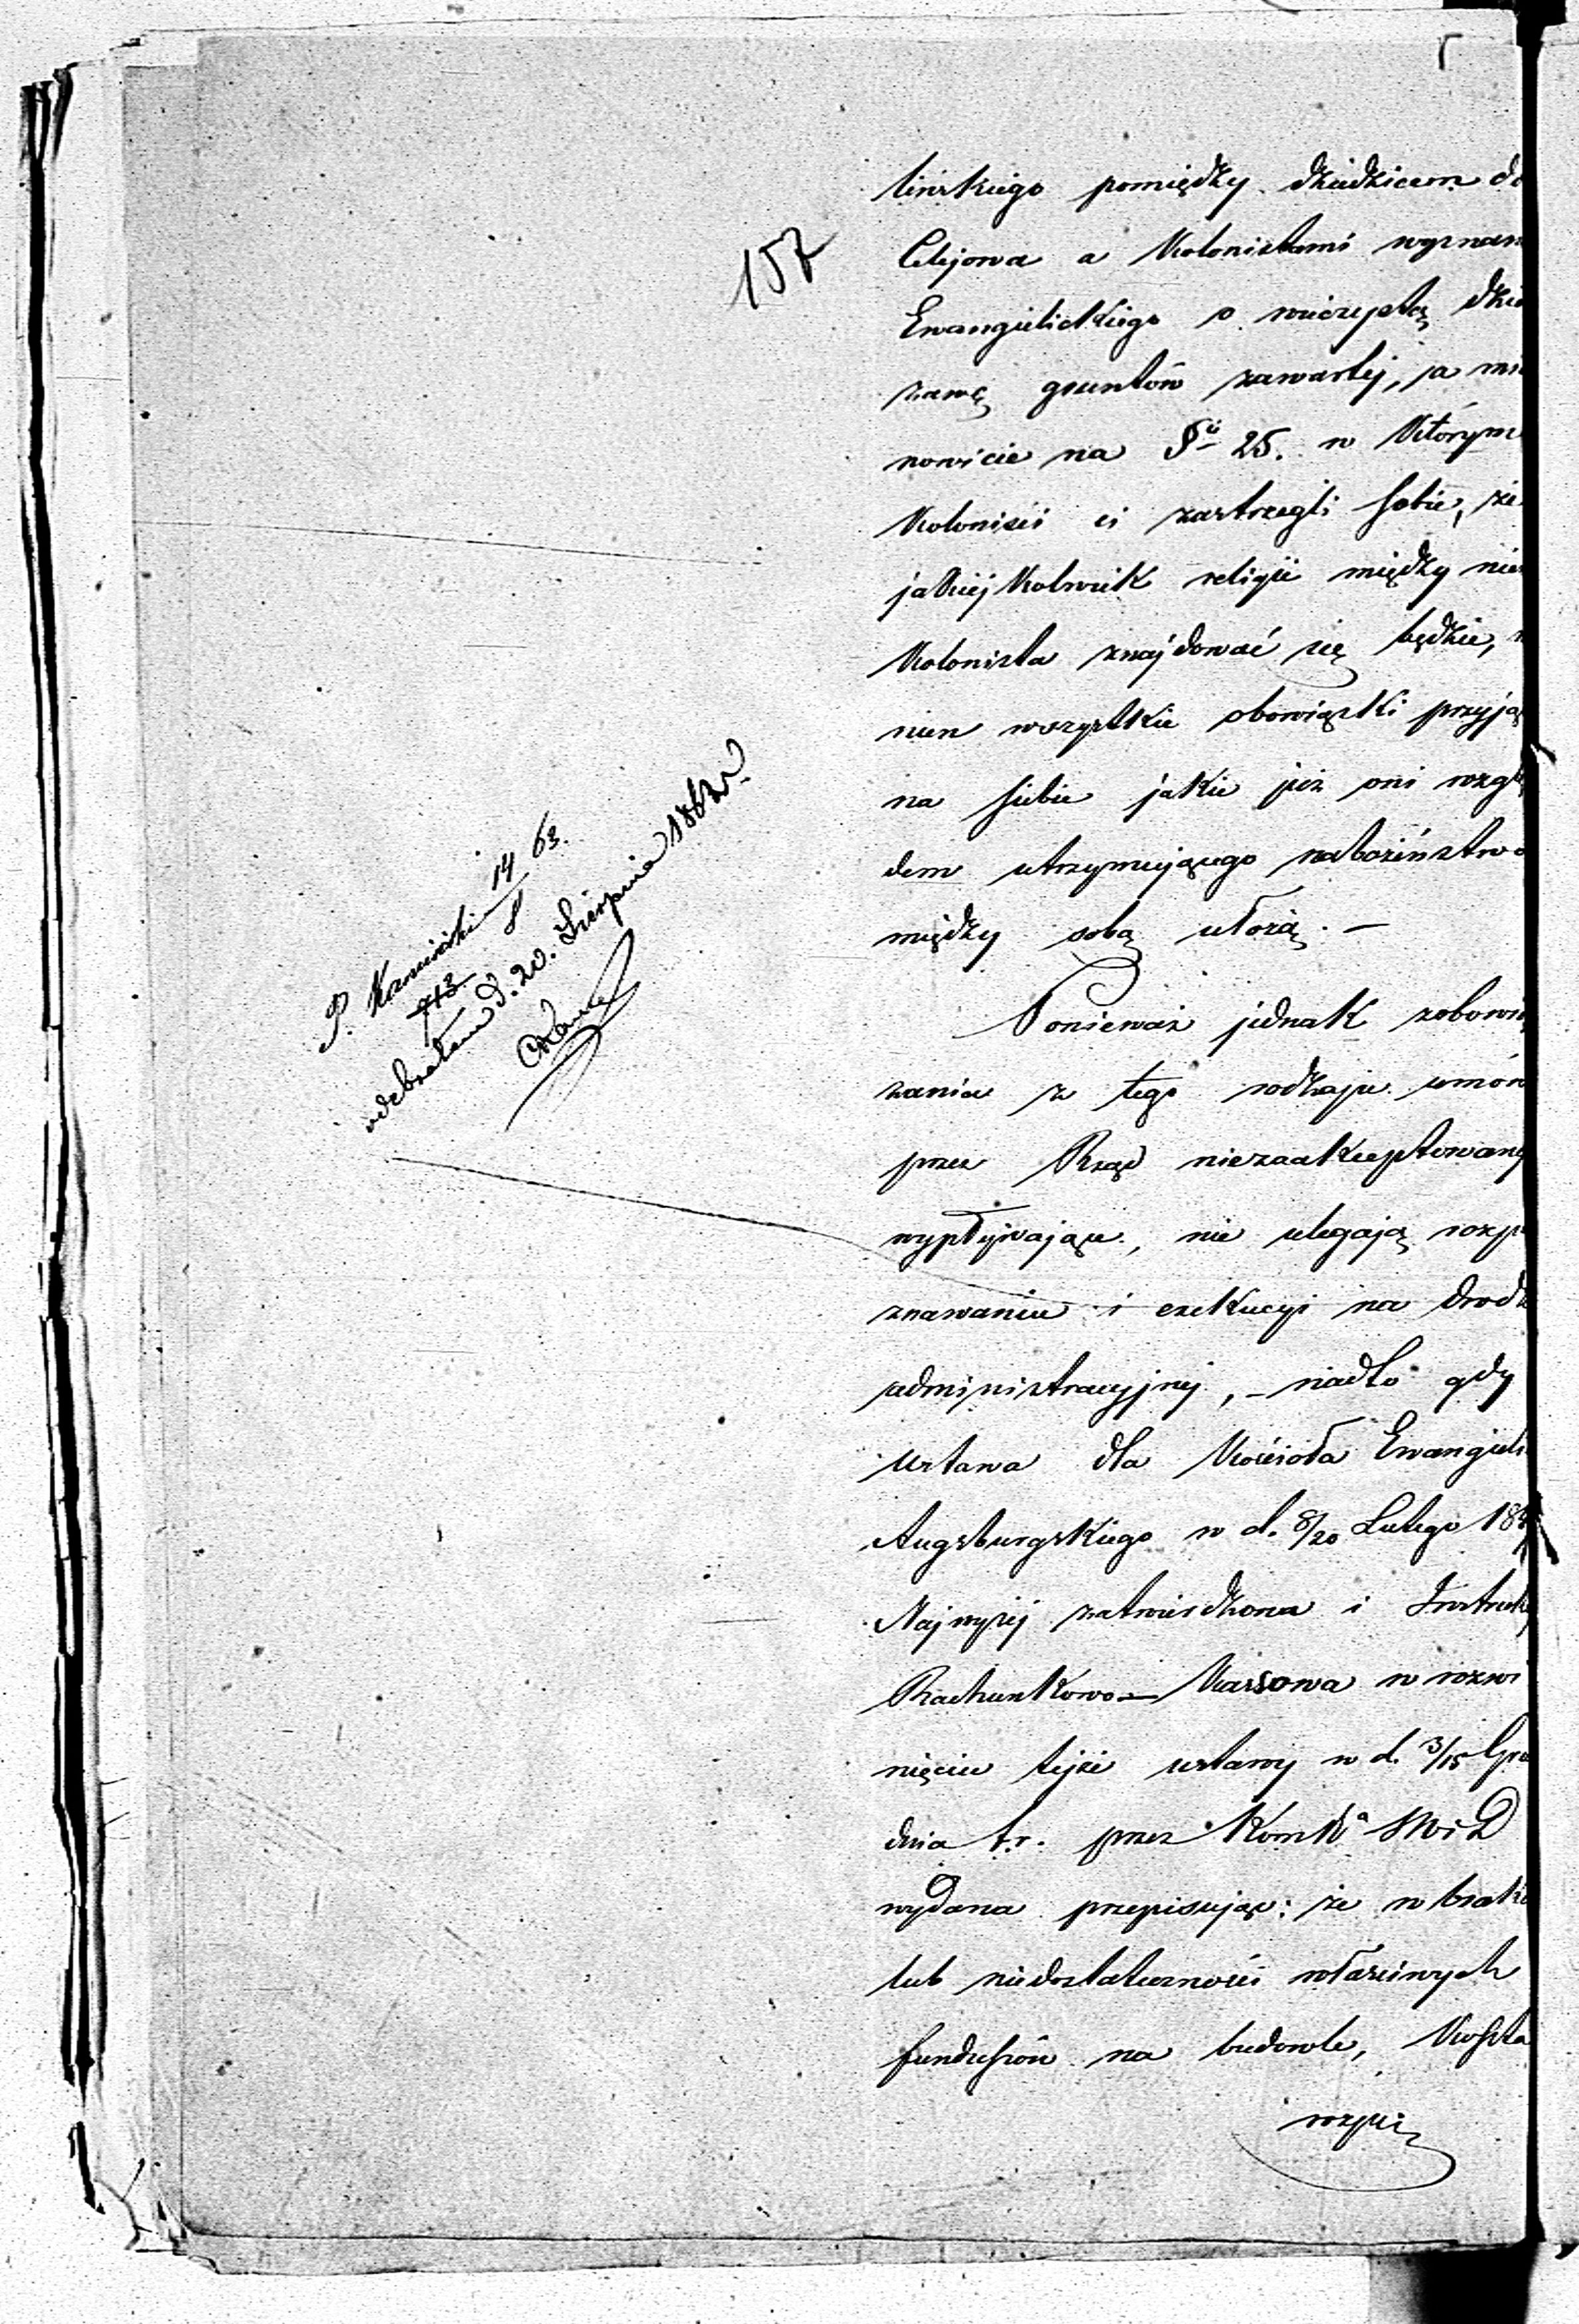 157
lińskiego pomiędzy dziedzicem
Celejowa a Kolonistami wyznan
Ewangielickiego o wieczystą dzie
zawę gruntów zawartej, a mia
nowicie na §ie 25. w którym
Koloniści ci zastrzegli sobie, że
jakiejkolwiek religii między niemi
Kolonista znajdować się będzie,
nien wszystkie obowiązki przyją
na siebie jakie już oni wzglę
dem utrzymującego nabożeństwo
między sobą ułożą. —
Ponieważ jednak zobowią
zania z tego rodzaju umów
przez Rząd niezaakceptowany
wypływające, nie ulegają rozpo
znawaniu i exekucyi na drodz
administracyjnej, – nadto gdy
ustawa dla Kościoła Ewangieli
Augsburgskiego w d. 8/20 Lutego 18
Najwyżej zatwierdzona i Instruk
Rachunkowo — Kassowa w rozwi
nięciu tejże ustawy w d. 3/15 Gru
dnia t.r. przez Komkę SWiD
wydana przepisując: że w braku
lub niedostateczności właściwych
funduszów na budowle, Koszta
rozpi
P. 14/8 63.
713
odebrałem d. 20. Sierpnia 1863 r.